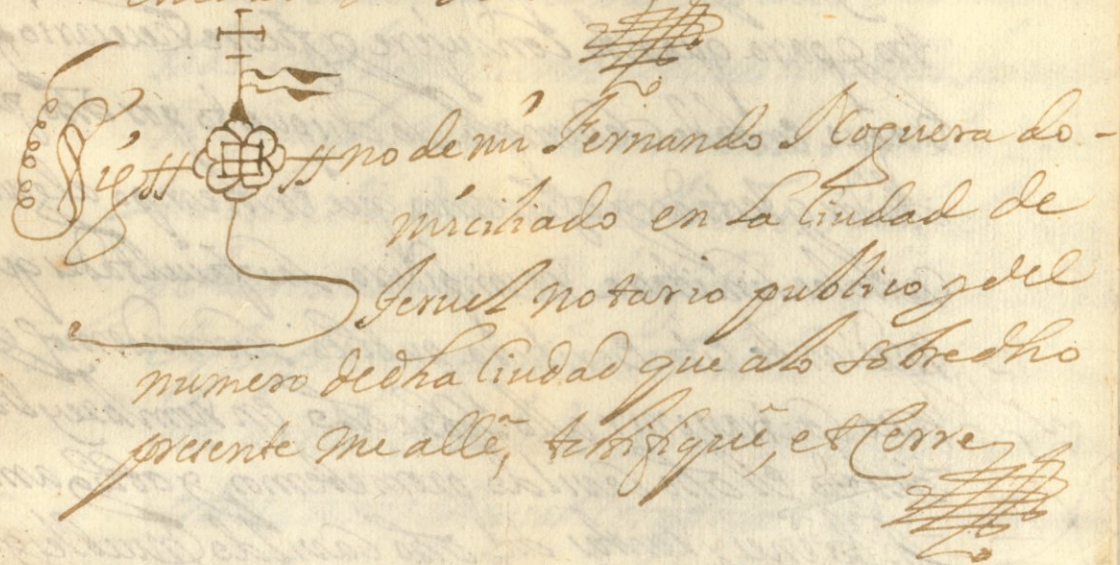 Sig##no de mi Fernando Noguera do-
miciliado en la Ciudad de
Teruel notario publico y del
numero dedha Ciudad que alo sobredho
presente me allê, testifiquê, et Cerre